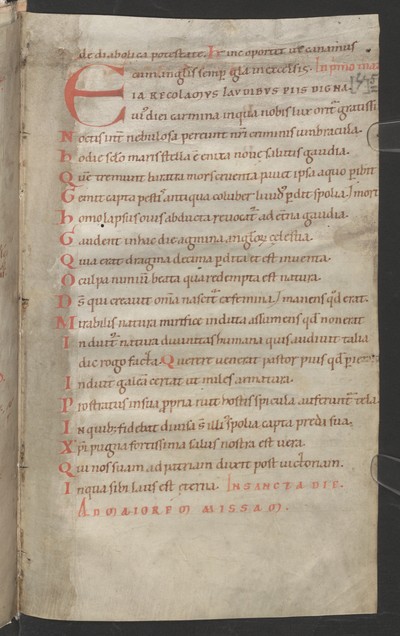 de diabolica potestate. Et inc oportet ut canamus
cum angelis semp gla in excelsis. In primo ma
EIA RECOLAMUS LAUDIBUS PIIS DIGNA.
ui diei carmina inqua nobis lux orit gratissi
Noctis int nebulosa pereunt nri criminis umbracula.
hodie sclo maris stella e enixa noue salutis gaudia.
Que tremunt baratra mors cruenta pauet ipsa a quo pibit
Gemit capta pestis antiqua coluber liuid pdit spolia.
homo lapsus ouis abducta reuocat ad etna gaudia.
Gaudent in hac die agmina anglox celestia.
Quia erat dragma decima pdita et est inuenta.
O culpa nimiu beata qua redempta est natura.
Ds qui creauit omia nascit ex femina.
Mirabilis natura mirifice induta assumens qd non erat
manens qd erat.
Induit natura diuinitas humana quis audiuit talia
dic rogo facta. Querere uenerat pastor pius qd pierat
Induit galea certat ut miles armatura.
Prostratus in sua ppria ruit hostis spicula auferunt tela
In quib; fidebat diuisa s illi spolia capta preda sua.
Xpi pugna fortissima salus nostra est uera.
Qui nos suam ad patriam duxit post uictoriam.
In qua sibi laus est eterna. IN SANCTA DIE.
AD MAIOREM MISSAM.